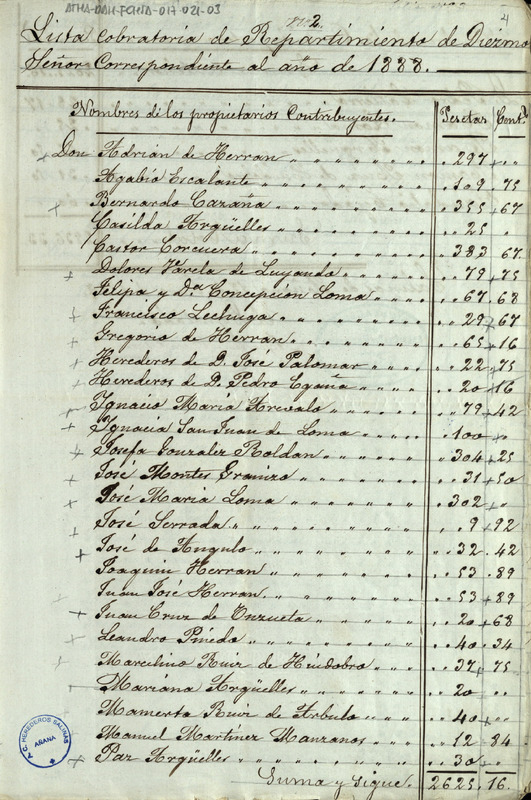 ATHA-DAH-FCHSA-017-021-03
nº 2.
4
Lista cobratoria de Repartimiento de Diezmo
Señor Correspondiente al año de 1888.
Nombres de los propietarios Contribuyentes. Pesetas Cent.s
Don Adrián de Herran 297 "
Agabio Escalante 109 75
Bernardo Cazaña 355 67
Casilda Argüelles 25 "
Castor Corcuera 383 67
Dolores Varela de Luyando 79 75
Felipa y D.a Concepción Loma 67 68
Francisco Lechuga 29 67
Gregorio de Herran 65 16
Herederos de D. José Palomar 22 75
Herederos de D. Pedro Egaña 20 16
Ignacio María Arevalo 79 42
Ignacia San Juan de Loma 100 "
Josefa Gonzalez Roldan 304 25
José Montes Granizo 31 50
José Maria Loma 302 "
José Serrada 9 92
José de Angulo 32 42
Joaquin Herran 53 89
Juan José Herran 53 89
Juan Cruz de Onzueta 20 68
Leandro Pinedo 40 34
Marcelino Ruiz de Huidobro 37 75
Mariana Argüelles 20 "
Mamerto Ruiz de Arbulo 40 "
Manuel Martinez Manzanos 12 84
Paz Argüelles 30 "
Suma y sigue. 2625 16.
C. HEREDEROS SALINAS
AÑANA